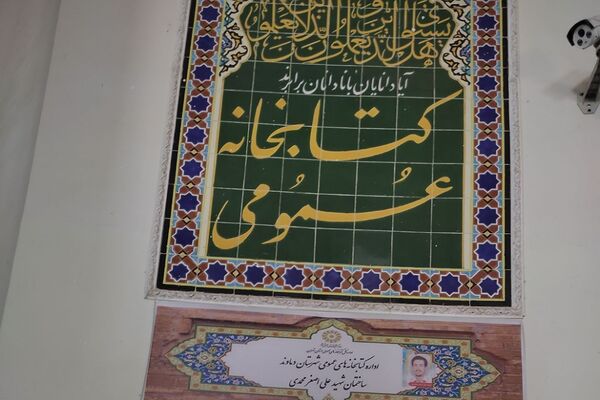 هل یستوی الذین یعلمون والذین لا یعلمون
آیا دانایان با نادانان برابرند
کتابخانه
عمومی
اداره کتابخانه‌های عمومی شهرستان دماوند
ساختمان شهید علی اصغر محمدی